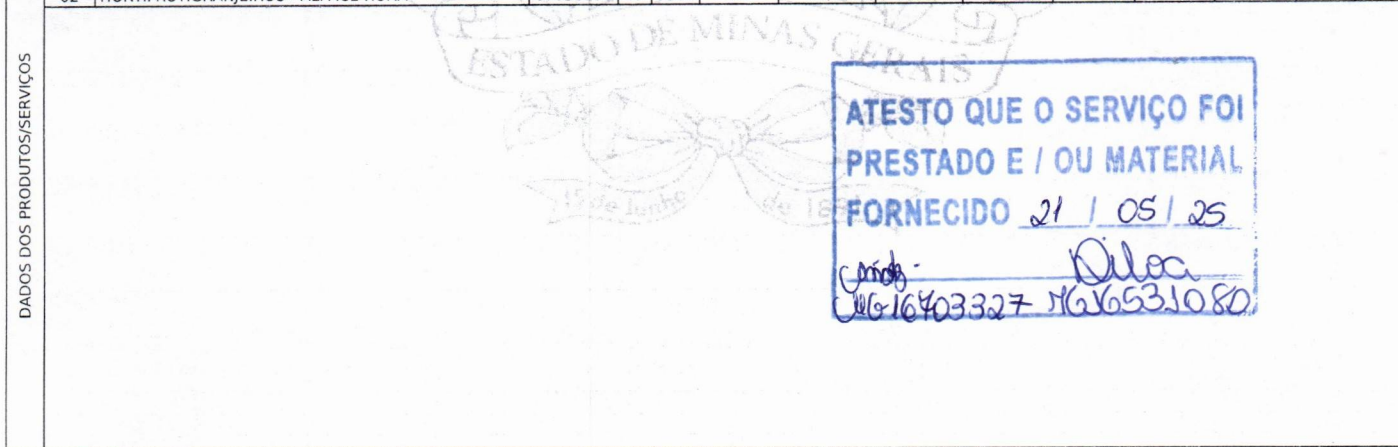 02 HORTIFRUTIGRANJEIROS
DADOS DOS PRODUTOS/SERVIÇOS
ESTADO DE MINAS GERAIS
15 de Junho de
ATESTO QUE O SERVIÇO FOI
PRESTADO E / OU MATERIAL
FORNECIDO 21 / 05 / 25
Dilca
MG16403327 MG16531080